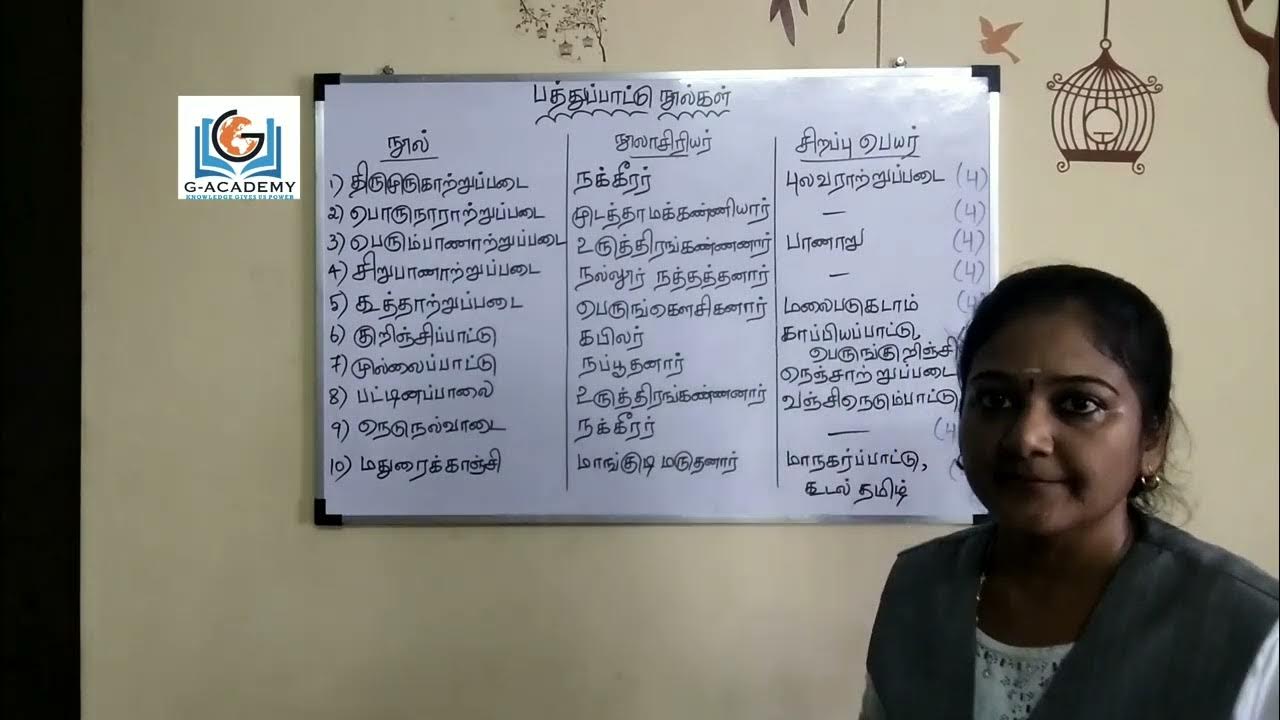 G-ACADEMY
KNOWLEDGE GIVES US POWER
பத்துப்பாட்டு நூல்கள்
நூல் நூலாசிரியர் சிறப்பு பெயர்
1) திருமுருகாற்றுப்படை நக்கீரர் புலவராற்றுப்படை (பு)
2) பொருநாராற்றுப்படை முடத்தாமக்கண்ணியார் — (பு)
3) பெரும்பாணாற்றுப்படை உருத்திரங்கண்ணனார் பாணாறு (பு)
4) சிறுபாணாற்றுப்படை நல்லூர் நத்தத்தனார் — (பு)
5) கூத்தாற்றுப்படை பெருங்கௌசிகனார் மலைபடுகடாம் (பு
6) குறிஞ்சிப்பாட்டு கபிலர் காப்பியப்பாட்டு,
பெருங்குறிஞ்சி
7) முல்லைப்பாட்டு நப்பூதனார் நெஞ்சாற்றுப்படை
8) பட்டினப்பாலை உருத்திரங்கண்ணனார் வஞ்சிநெடும்பாட்டு
9) நெடுநல்வாடை நக்கீரர் —
10) மதுரைக்காஞ்சி மாங்குடி மருதனார் மாநகர்ப்பாட்டு,
கூடல் தமிழ்